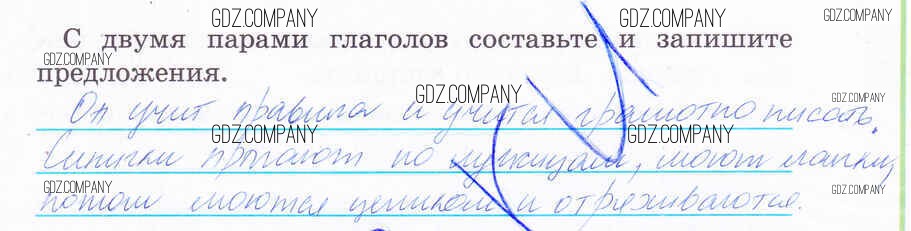 GDZ.COMPANY GDZ.COMPANY GDZ.COMPANY
С двумя парами глаголов составьте и запишите
GDZ.COMPANY GDZ.COMPANY
предложения.
GDZ.COMPANY
Он учит правила и учится грамотно писать.
GDZ.COMPANY
GDZ.COMPANY GDZ.COMPANY
Синички прыгают по лужицам, моют лапки,
GDZ.COMPANY GDZ.COMPANY
потом моются целиком и отряхиваются.